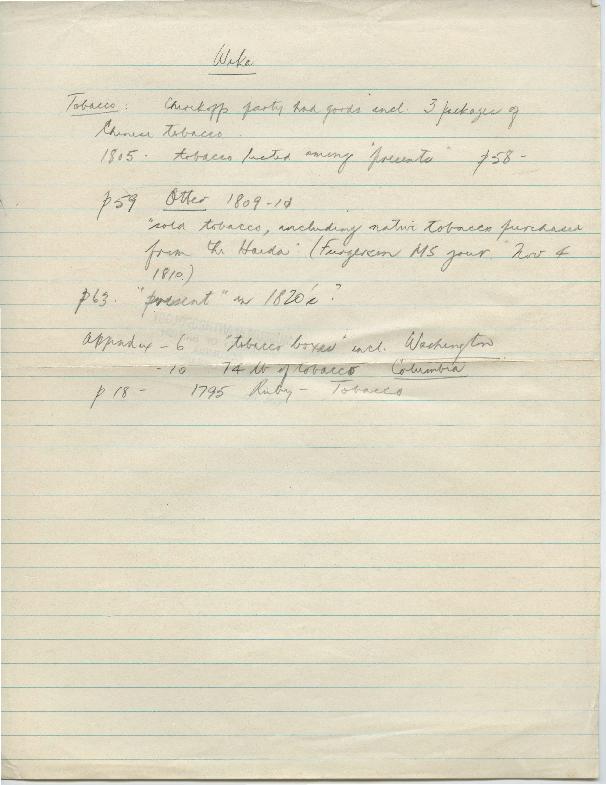 Wike
Tobacco: Cherikopp party had goods incl. 3 packages of
Chinese tobacco.
1805. tobacco listed among "presents" p58-
p59 Otter 1809-10
"sold tobacco, including native tobacco purchased
from the Haida" (Furgerson MS jour. "Nov 4
1810)
p63. "present" in 1820's?
Appendix - 6 "tobacco boxes" incl. Washington
- 10 74 lb of tobacco Columbia
p 18 - 1795 Ruby - Tobacco